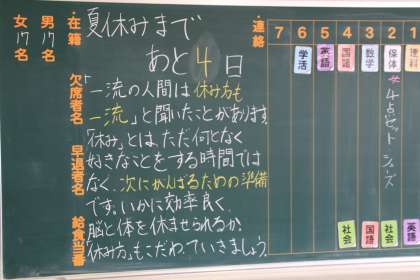 7 6 5 4 3 2 1
理科
保体
数学
国語
英語
学活
4点セット
シューズ
英語
社会
国語
社会
・連絡
夏休みまで
あと4日
「一流の人間は休み方も
一流」と聞いたことがあります。
「休み」とは、ただ何となく
好きなことをする時間では
なく、次にがんばるための準備
です。いかに効率良く、
脳と体を休ませられるか。
「休み方」もこだわっていきましょう。
・在籍
欠席者名
早退者名
給食当番
男17名
女17名